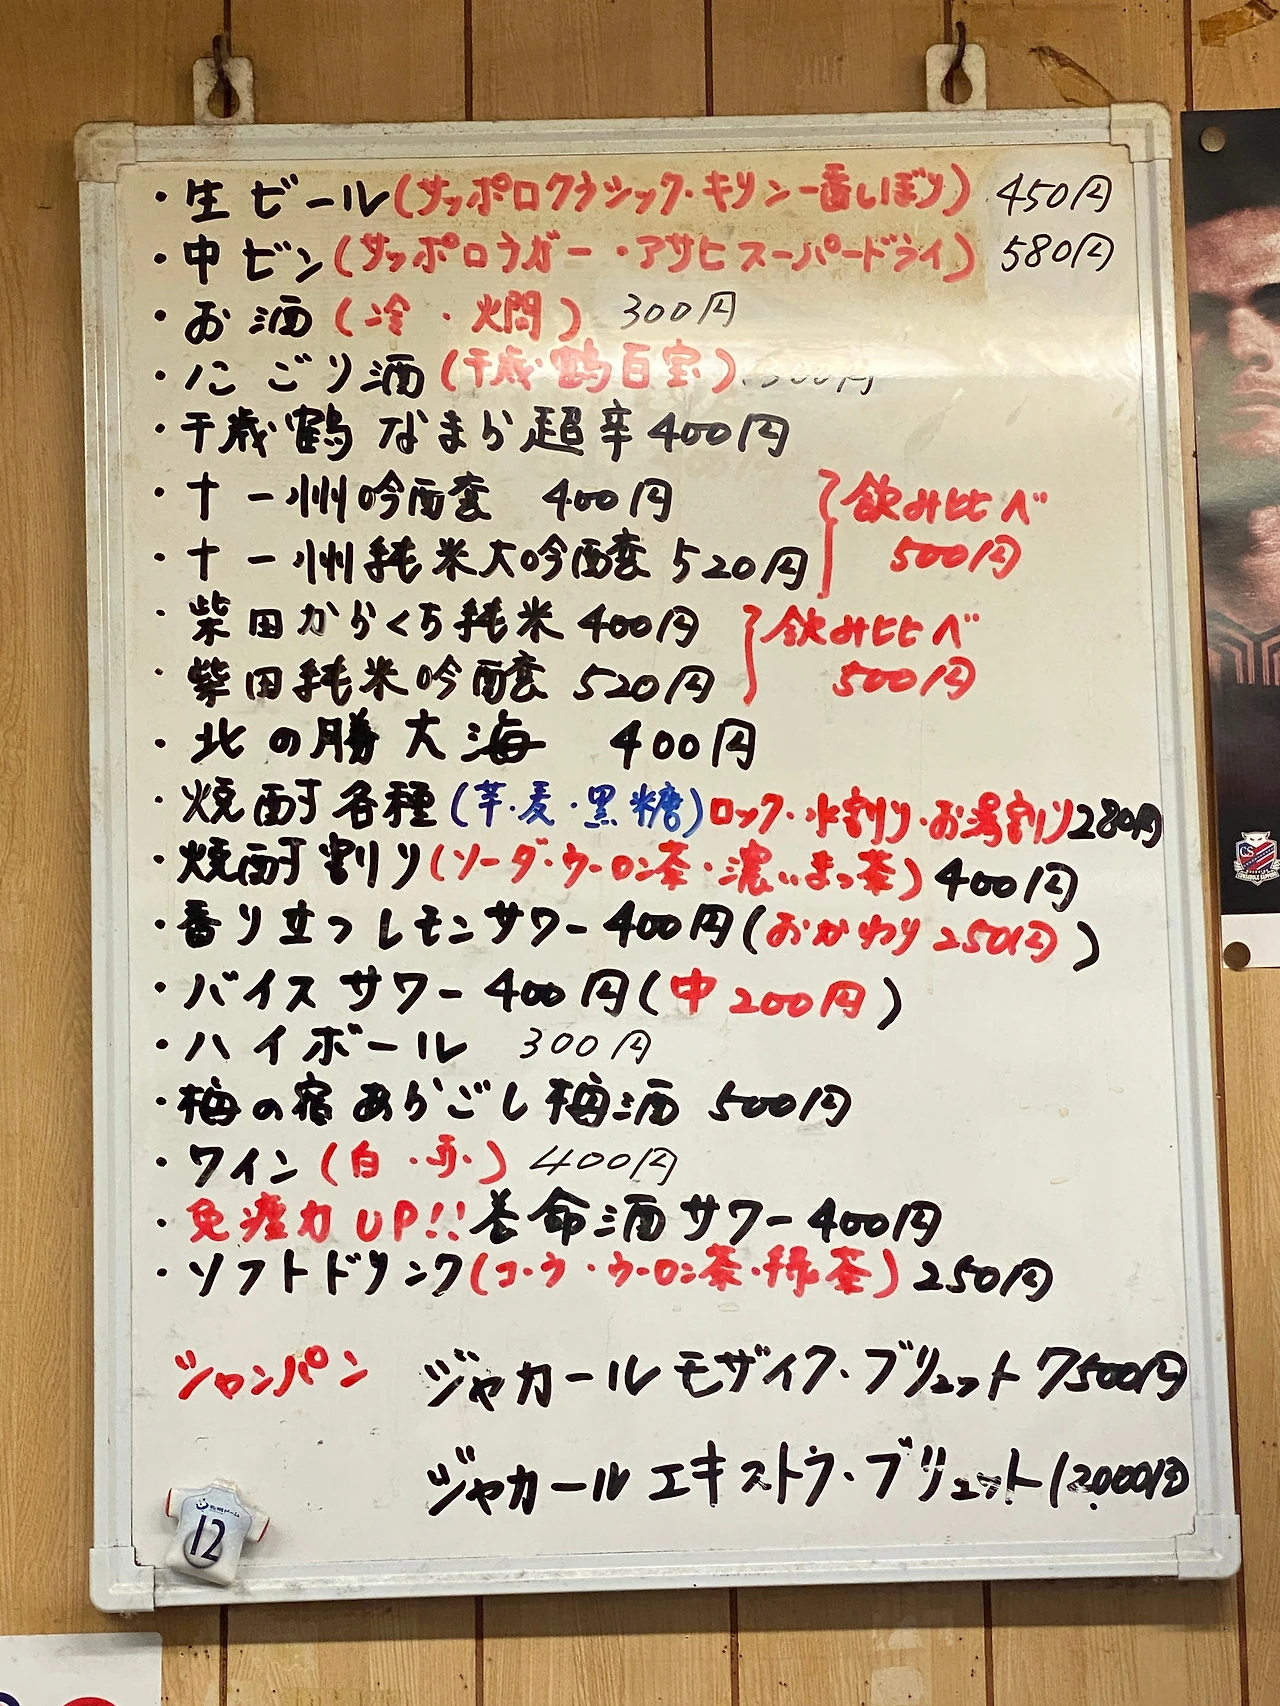 ・生ビール(サッポロクラシック・キリン一番しぼり) 450円
・中ビン(サッポロラガー・アサヒスーパードライ) 580円
・お酒(冷・燗) 300円
・にごり酒(千歳鶴百宝) 300円
・千歳鶴 なまら超辛 400円
・十一州吟醸 400円
・十一州純米大吟醸 520円
}飲み比べ
500円
・柴田からくち純米 400円
・柴田純米吟醸 520円
}飲み比べ
500円
・北の勝 大海 400円
・焼酎各種(芋・麦・黒糖)ロック・水割り・お湯割り280円
・焼酎割り(ソーダ・ウーロン茶・濃いまっ茶) 400円
・香り立つレモンサワー 400円(おかわり250円)
・バイスサワー 400円(中200円)
・ハイボール 300円
・梅の宿あらごし梅酒 500円
・ワイン(白・赤) 400円
・免疫力UP!!養命酒サワー 400円
・ソフトドリンク(コーラ・ウーロン茶・緑茶) 250円
シャンパン ジャカール モザイク・ブリュット 7500円
ジャカール エキストラ・ブリュット 12.000円
12